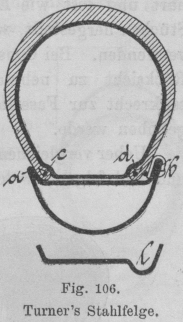 c d
a b
C
Fig. 106.
Turner's Stahlfelge.